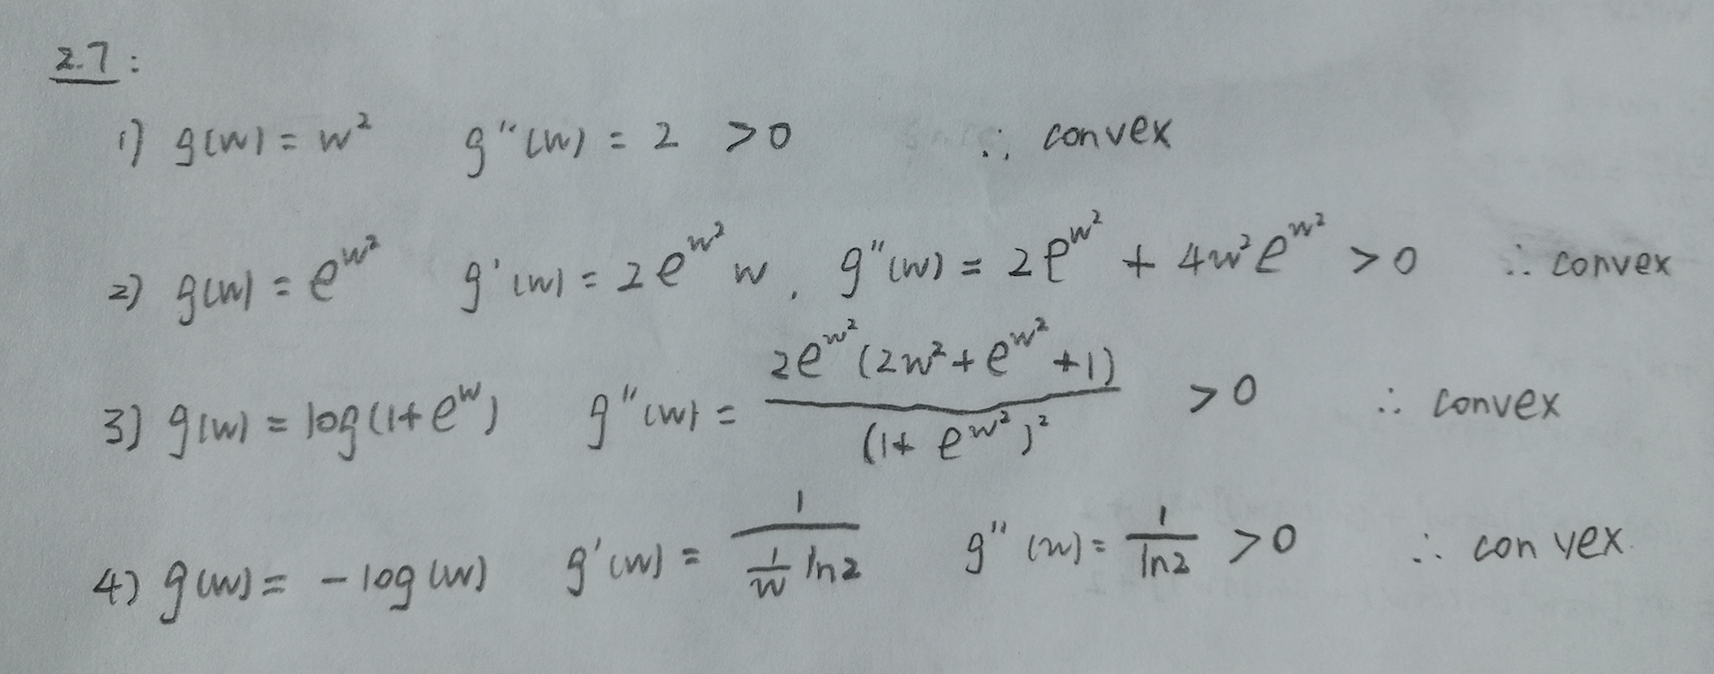 2.7:
1) g(w) = w² g''(w) = 2 > 0 ∴ convex
2) g(w) = e^{w²} g'(w) = 2e^{w²} w, g''(w) = 2e^{w²} + 4w²e^{w²} > 0 ∴ convex
3) g(w) = log(1+e^w) g''(w) = \frac{2e^{w²}(2w²+e^{w²}+1)}{(1+e^{w²})²} > 0 ∴ convex
4) g(w) = -log(w) g'(w) = \frac{1}{\frac{1}{w} ln2} g''(w) = \frac{1}{ln2} > 0 ∴ convex.